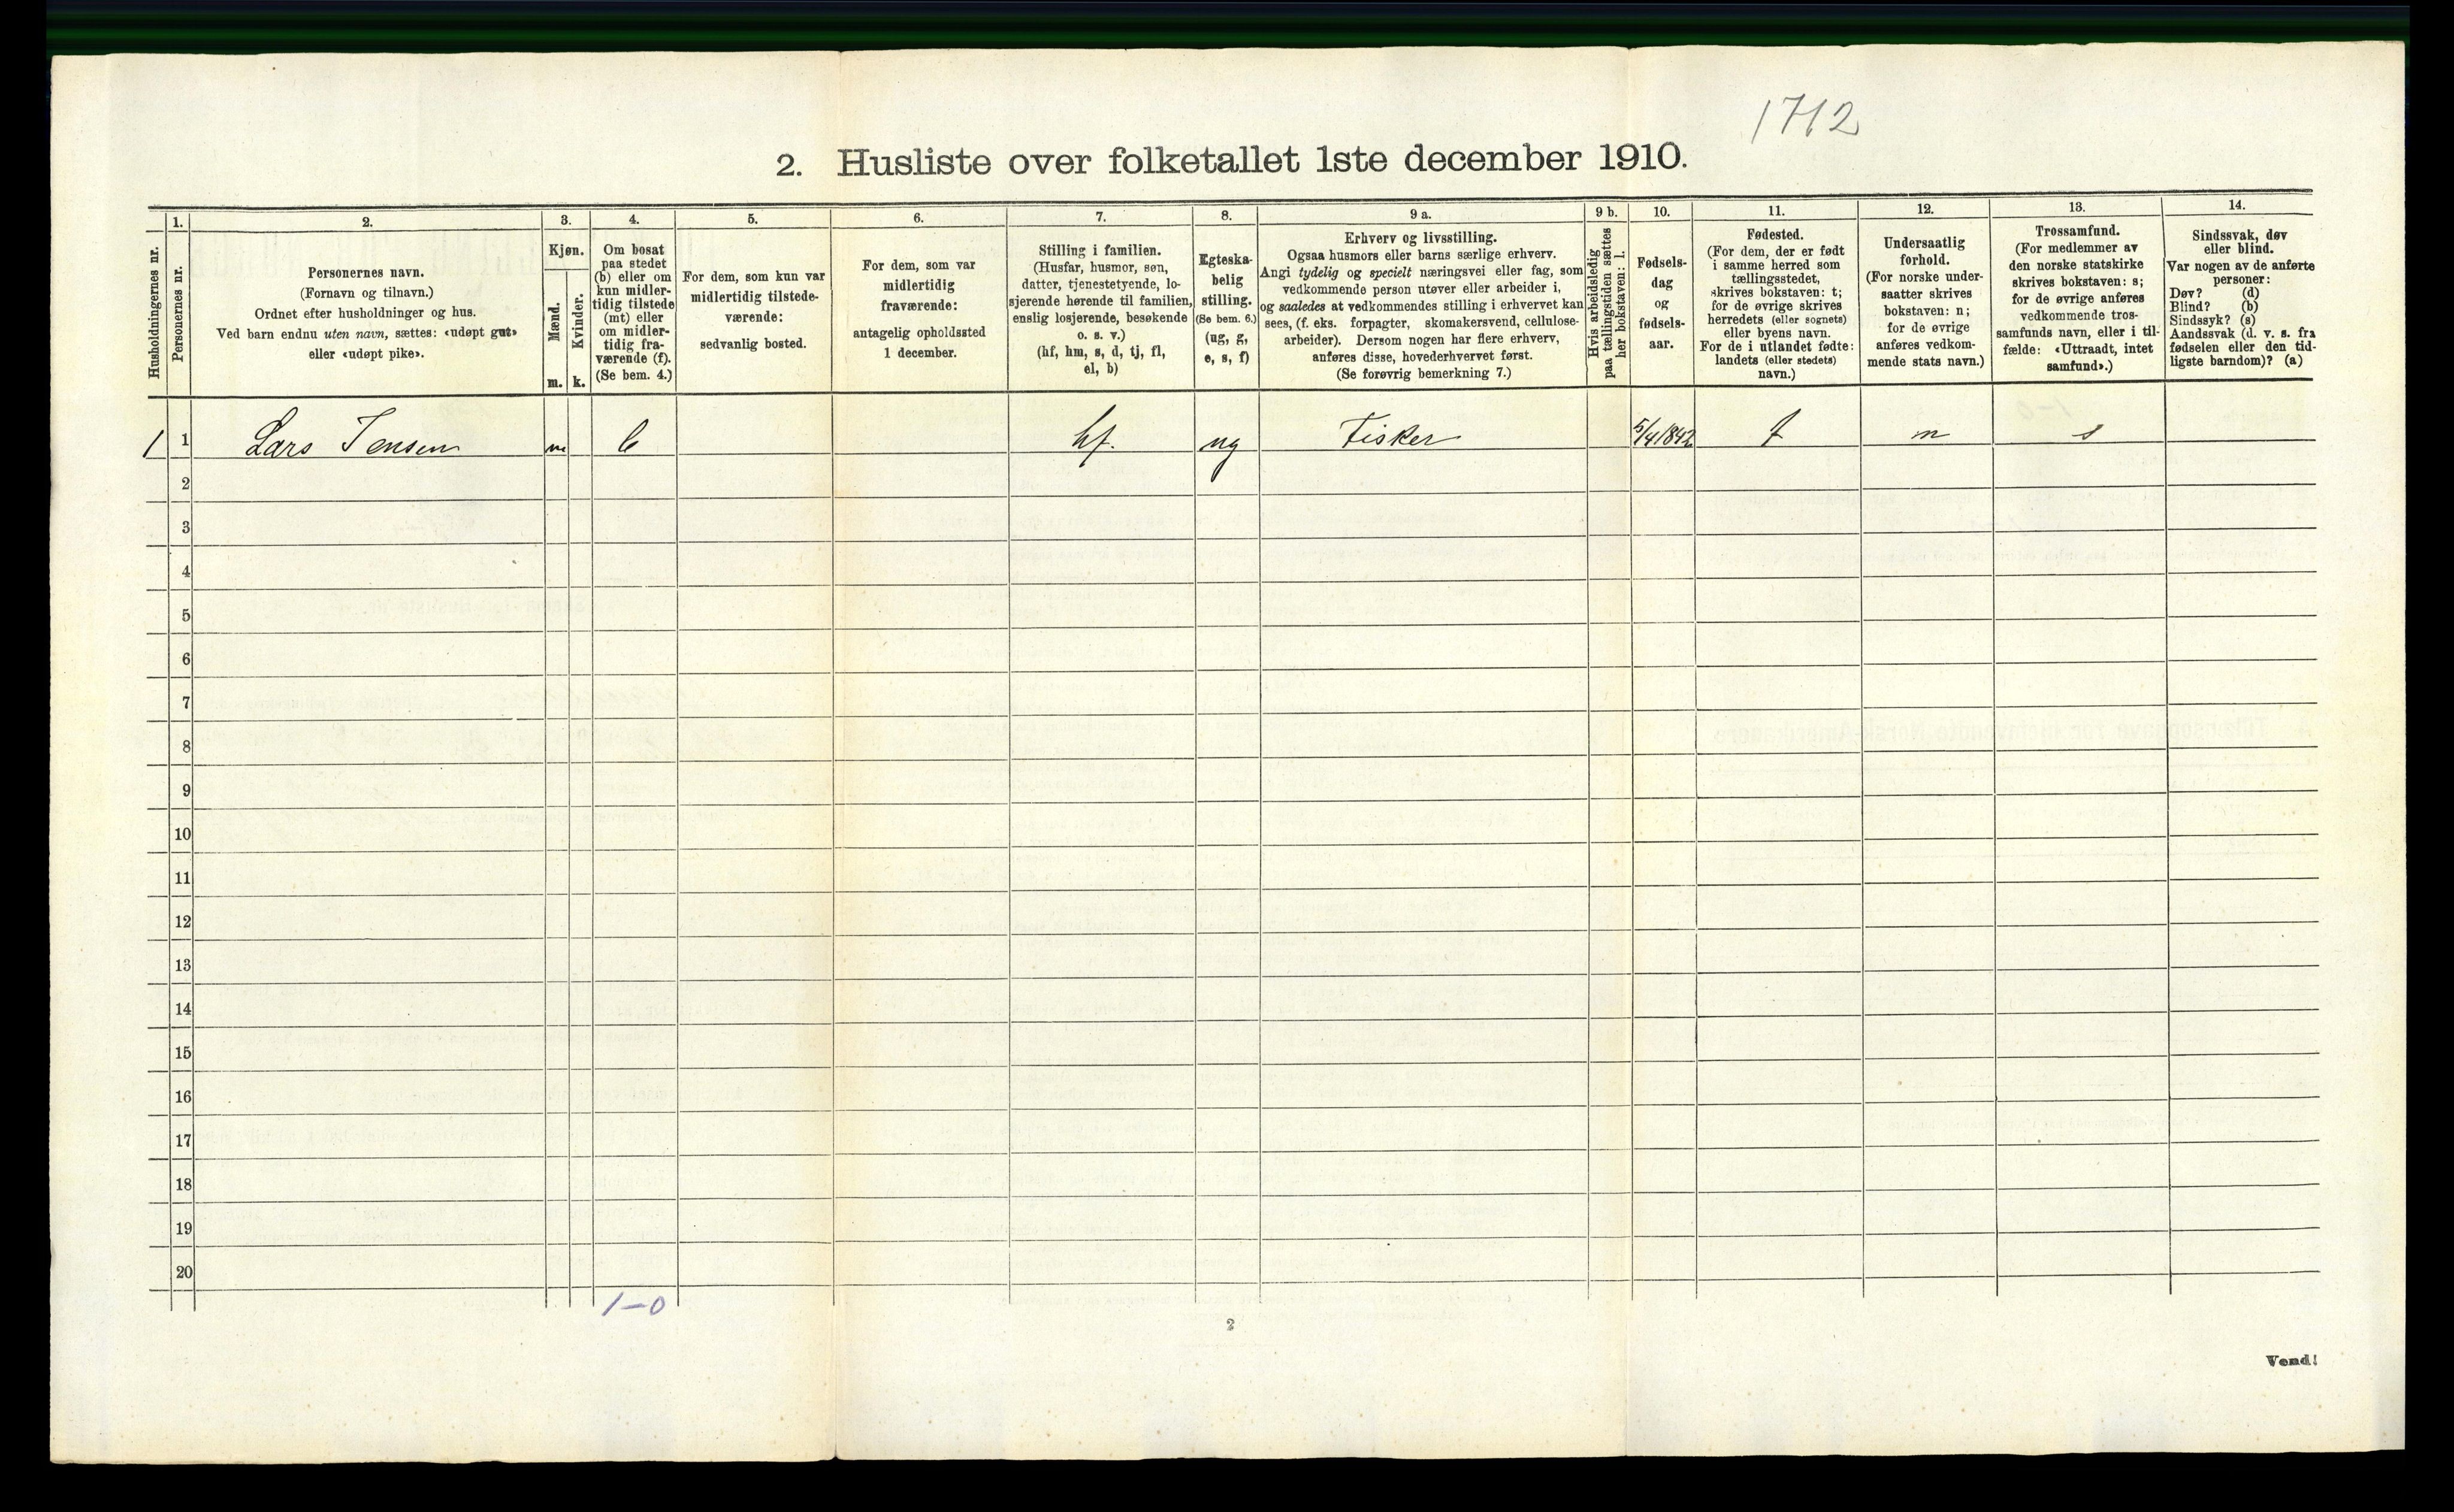 1712
2. Husliste over folketallet 1ste december 1910.
Husholdningernes nr.
1.
Personernes nr.
2.
Personernes navn.
(Fornavn og tilnavn.)
Ordnet efter husholdninger og hus.
Ved barn endnu uten navn, sættes: «udøpt gut»
eller «udøpt pike».
3.
Kjøn.
Mænd.
Kvinder.
m.
k.
4.
Om bosat
paa stedet
(b) eller om
kun midler-
tidig tilstede
(mt) eller
om midler-
tidig fra-
værende (f).
(Se bem. 4.)
5.
For dem, som kun var
midlertidig tilstede-
værende:
sedvanlig bosted.
6.
For dem, som var
midlertidig
fraværende:
antagelig opholdssted
1 december.
7.
Stilling i familien.
(Husfar, husmor, søn,
datter, tjenestetyende, lo-
sjerende hørende til familien,
enslig losjerende, besøkende
o. s. v.)
(hf, hm, s, d, tj, fl,
el, b)
8.
Egteska-
belig
stilling.
(Se bem. 6.)
(ug, g,
e, s, f)
9 a.
Erhverv og livsstilling.
Ogsaa husmors eller barns særlige erhverv.
Angi tydelig og specielt næringsvei eller fag, som
vedkommende person utøver eller arbeider i,
og saaledes at vedkommendes stilling i erhvervet kan
sees, (f. eks. forpagter, skomakersvend, cellulose-
arbeider). Dersom nogen har flere erhverv,
anføres disse, hovederhvervet først.
(Se forøvrig bemerkning 7.)
9 b.
Hvis arbeidsledig
paa tællingstiden sættes
her bokstaven: l.
10.
Fødsels-
dag
og
fødsels-
aar.
11.
Fødested.
(For dem, der er født
i samme herred som
tællingsstedet,
skrives bokstaven: t;
for de øvrige skrives
herredets (eller sognets)
eller byens navn.
For de i utlandet fødte:
landets (eller stedets)
navn.)
12.
Undersaatlig
forhold.
(For norske under-
saatter skrives
bokstaven: n;
for de øvrige
anføres vedkom-
mende stats navn.)
13.
Trossamfund.
(For medlemmer av
den norske statskirke
skrives bokstaven: s;
for de øvrige anføres
vedkommende tros-
samfunds navn, eller i til-
fælde: «Uttraadt, intet
samfund».)
14.
Sindssvak, døv
eller blind.
Var nogen av de anførte
personer:
Døv? (d)
Blind? (b)
Sindssyk? (s)
Aandssvak (d. v. s. fra
fødselen eller den tid-
ligste barndom)? (a)
1 1 Lars Jensen m b hf. ug Fisker 5/4 1842 t n s
2
3
4
5
6
7
8
9
10
11
12
13
14
15
16
17
18
19
20
1-0
2
Vend!